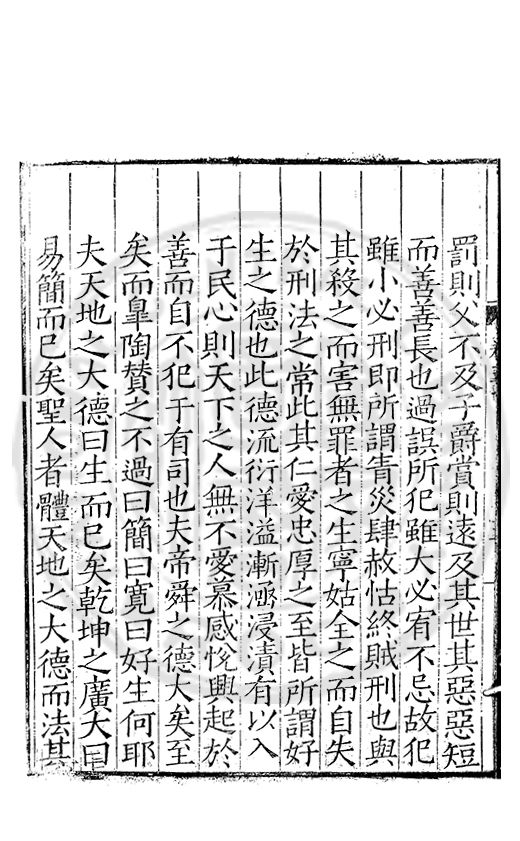 罰則父不及子爵賞則遠及其世其惡惡短
而善善長也過誤所犯雖大必宥不忌故犯
雖小必刑即所謂眚災肆赦怙終賊刑也與
其殺之而害無罪者之生寧姑全之而自失
於刑法之常此其仁愛忠厚之至皆所謂好
生之德也此德流衍洋溢漸涵浸漬有以入
于民心則天下之人無不愛慕感悅興起於
善而自不犯于有司也夫帝舜之德大矣至
矣而臯陶賛之不過曰簡曰寛曰好生何耶
夫天地之大德曰生而已矣乾坤之廣大曰
易簡而已矣聖人者體天地之大德而法其